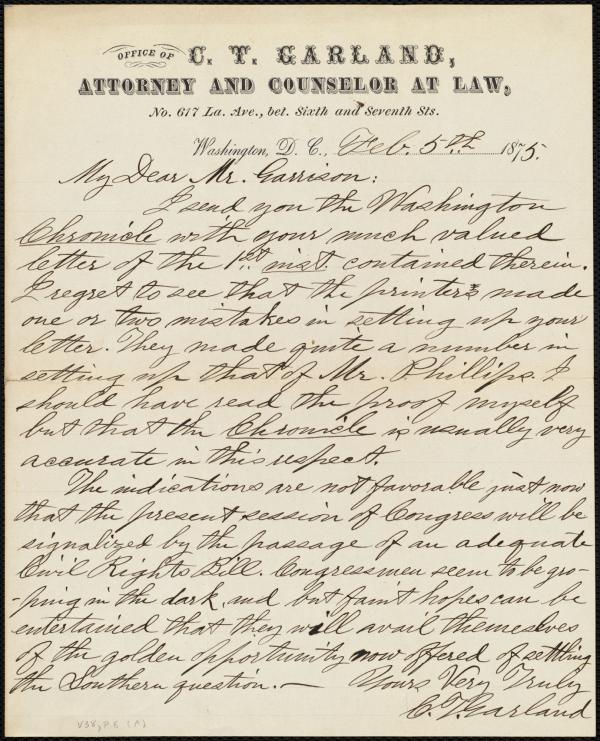 OFFICE OF C. T. GARLAND,
ATTORNEY AND COUNSELOR AT LAW,
No. 617 La. Ave., bet. Sixth and Seventh Sts.
Washington, D. C., Feb. 5th. 1875.
My Dear Mr. Garrison:
I send you the Washington
Chronicle with your much valued
letter of the 1st. inst. contained therein.
I regret to see that the printers made
one or two mistakes in setting up your
letter. They made quite a number in
setting up that of Mr. Phillips. I
should have read the proof myself
but that the Chronicle is usually very
accurate in this respect.
The indications are not favorable just now
that the present session of Congress will be
signalized by the passage of an adequate
Civil Rights Bill. Congressmen seem to be gro-
-ping in the dark, and but faint hopes can be
entertained that they will avail themselves
of the golden opportunity now offered of settling
the Southern question. — Yours Very Truly
C. T. Garland
V38, P.8 (A)